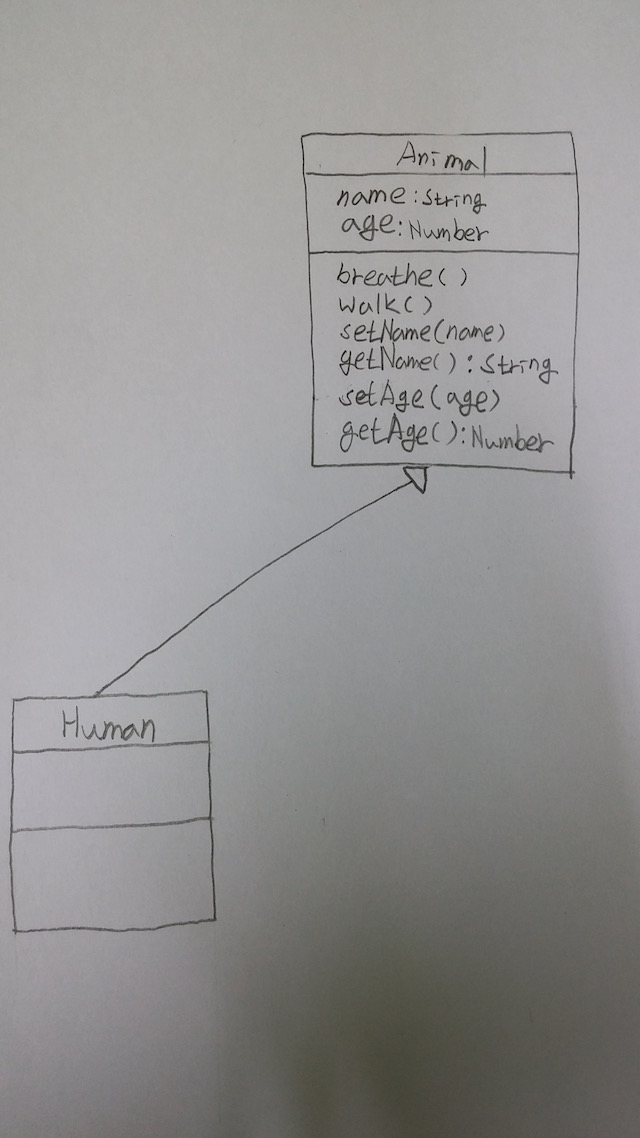 Animal
name : String
age : Number
breathe()
walk()
setName(name)
getName() : String
setAge(age)
getAge() : Number
Human